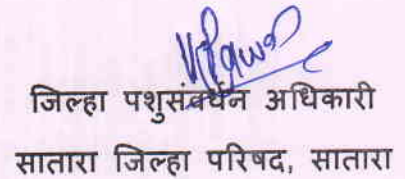 जिल्हा पशुसंवर्धन अधिकारी
सातारा जिल्हा परिषद, सातारा